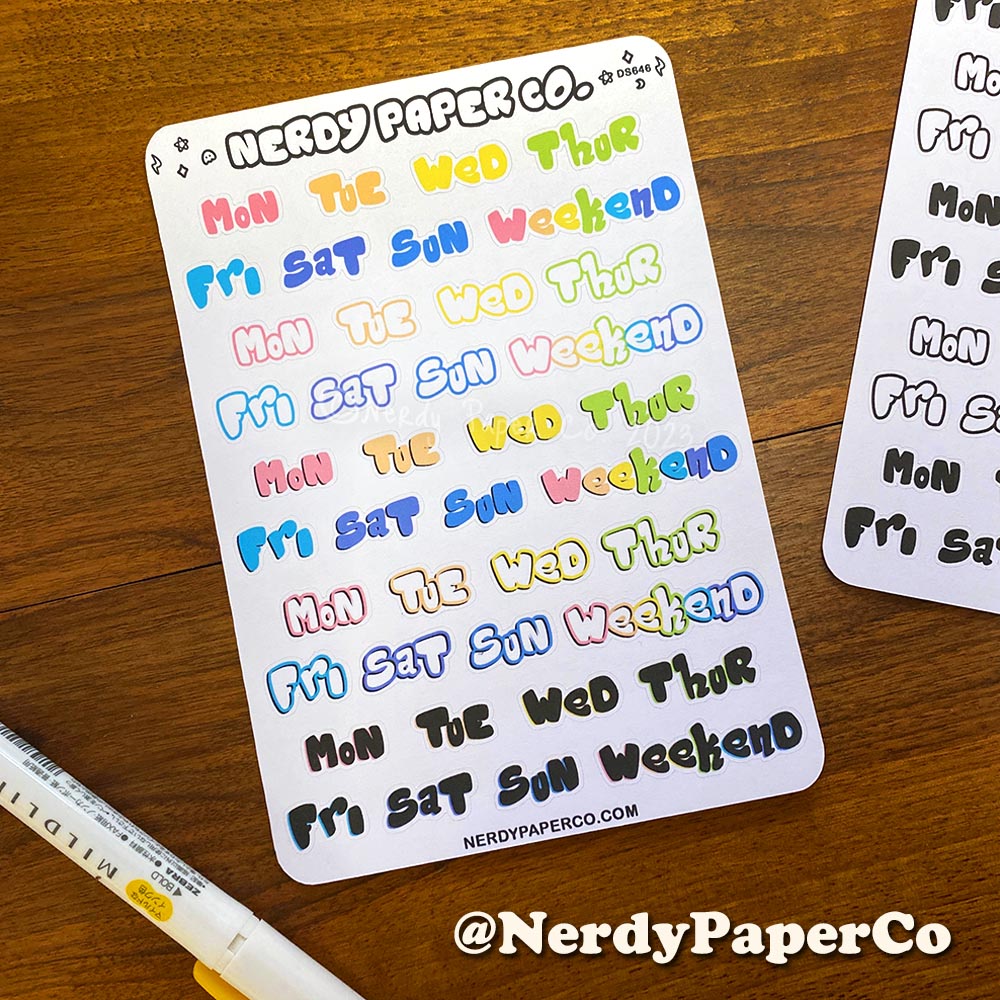 NERDY PAPER CO.
DS646
MON TUE WED THUR
Fri SaT SUN WeekenD
MON TUE WED THUR
Fri SaT SUN WeekenD
@Nerdy Paper Co 2023
MON TUE WED THUR
Fri SaT SUN WeekenD
MON TUE WED THUR
Fri SaT SUN WeekenD
MON TUE WED THUR
Fri SaT SUN WeekenD
NERDYPAPERCO.COM
Fri
Fri
MON
Fri
MON
Fri
MON
Fri
MILDLI
BOLD
ZEBRA
@NerdyPaperCo